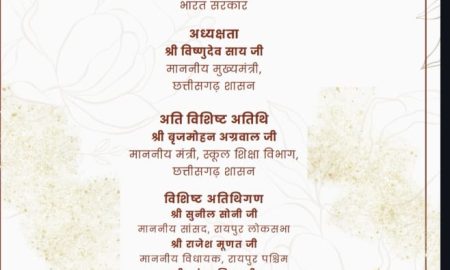 भारत सरकार
अध्यक्षता
श्री विष्णुदेव साय जी
माननीय मुख्यमंत्री,
छत्तीसगढ़ शासन
अति विशिष्ट अतिथि
श्री बृजमोहन अग्रवाल जी
माननीय मंत्री, स्कूल शिक्षा विभाग,
छत्तीसगढ़ शासन
विशिष्ट अतिथिगण
श्री सुनील सोनी जी
माननीय सांसद, रायपुर लोकसभा
श्री राजेश मूणत जी
माननीय विधायक, रायपुर पश्चिम